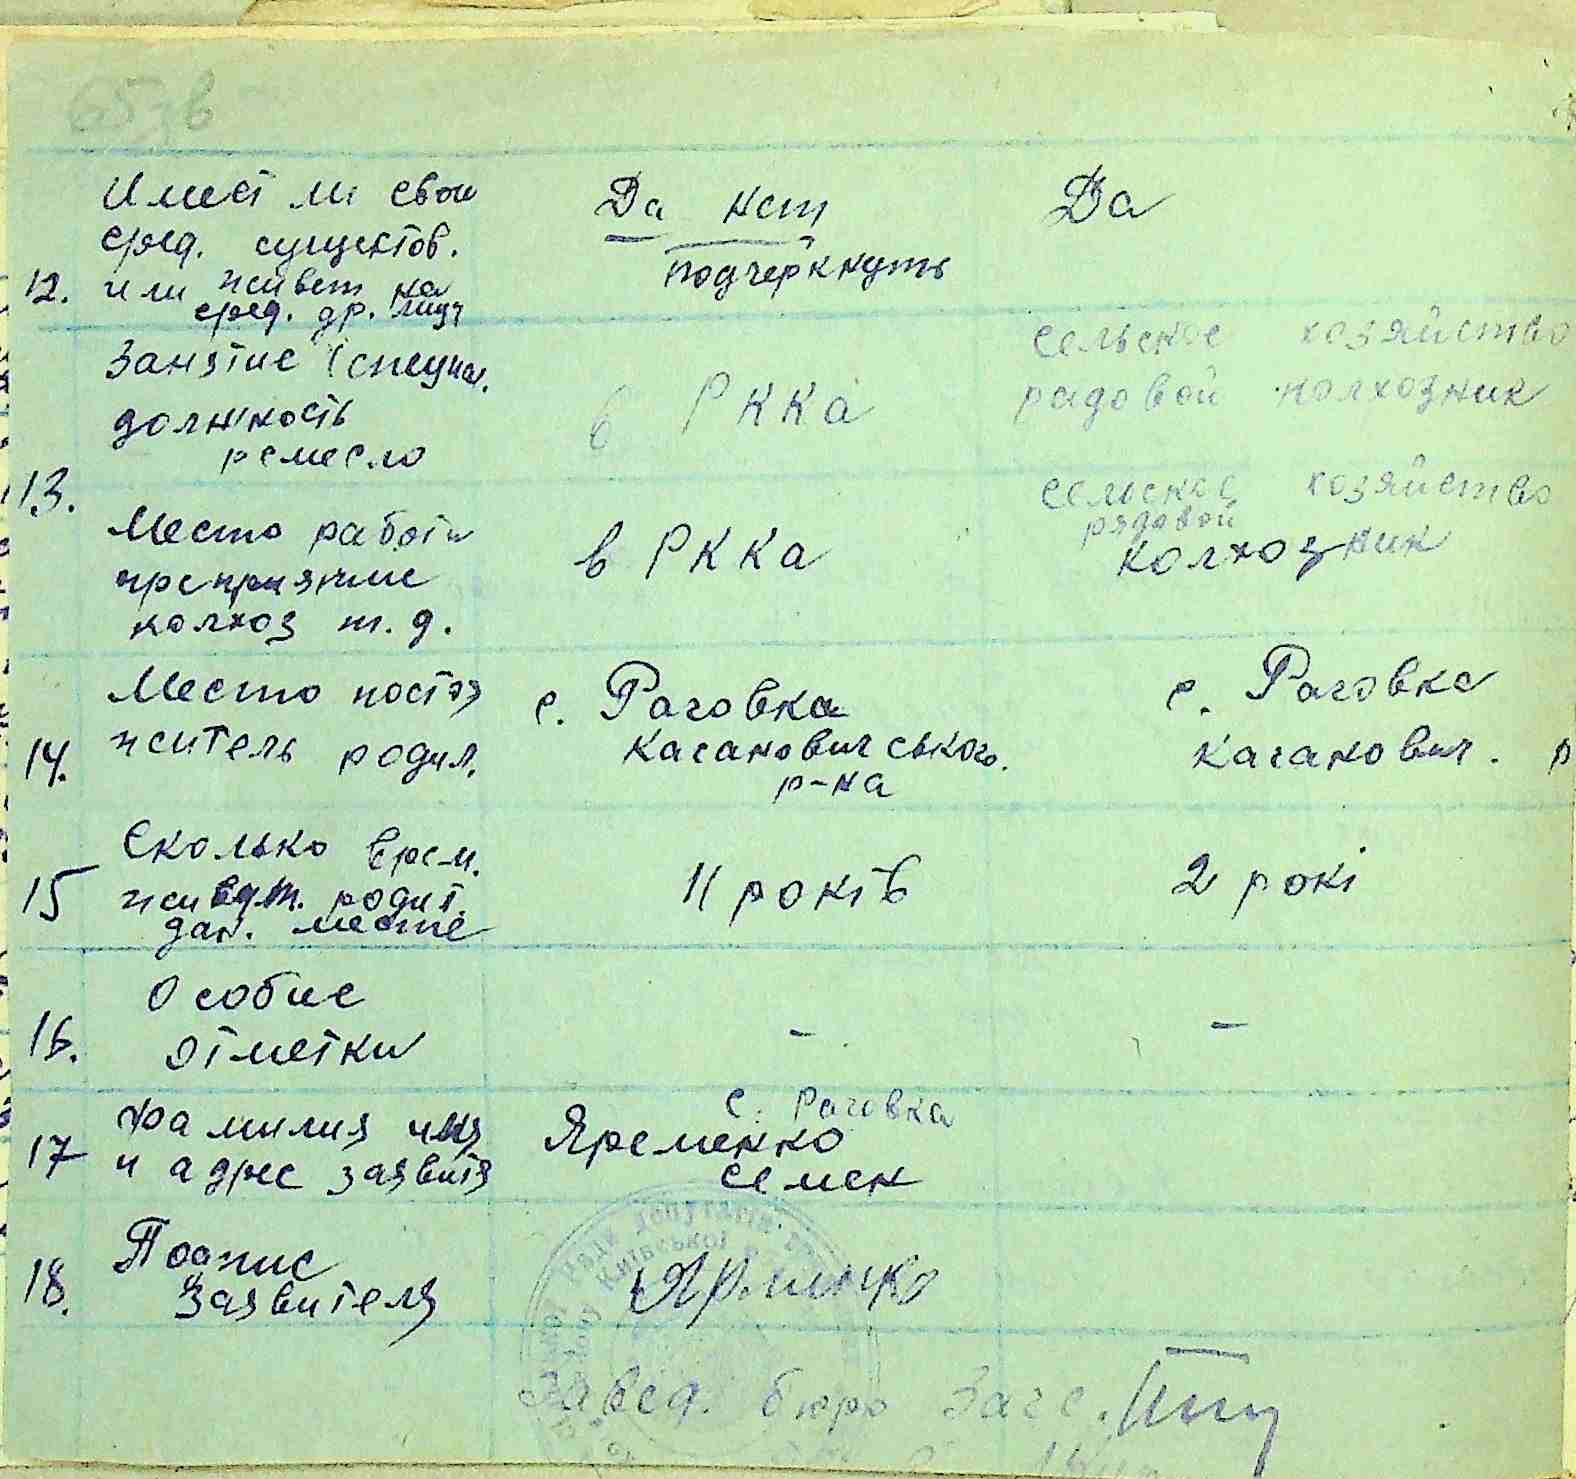 65 зв
Имеет ли свои
сред. существов.
12. или живет на
сред. др. лица
Да нет
подчеркнуть
Да
Занятие (специал.
должность
ремесло
13.
в РККа
сельское хозяйство
радовой колхозник
Место работи
предприятие
колхоз т. д.
в РККа
сельское хозяйство
рядовой
колхозник
Место постоя
14. житель родил.
с. Раговка
Кагановичського.
р-на
с. Раговка
Каганович. р
Сколько врем.
15 живут. родит.
дан. месте
11 років
2 рокі
Особие
16. отметки
-
-
Фамилия имя
17 и адрес заявитя
с. Раговка
Яременко
Семен
Подпис
18. Заявителя
Рада депутатів
Київської
Завед. бюро Загс.